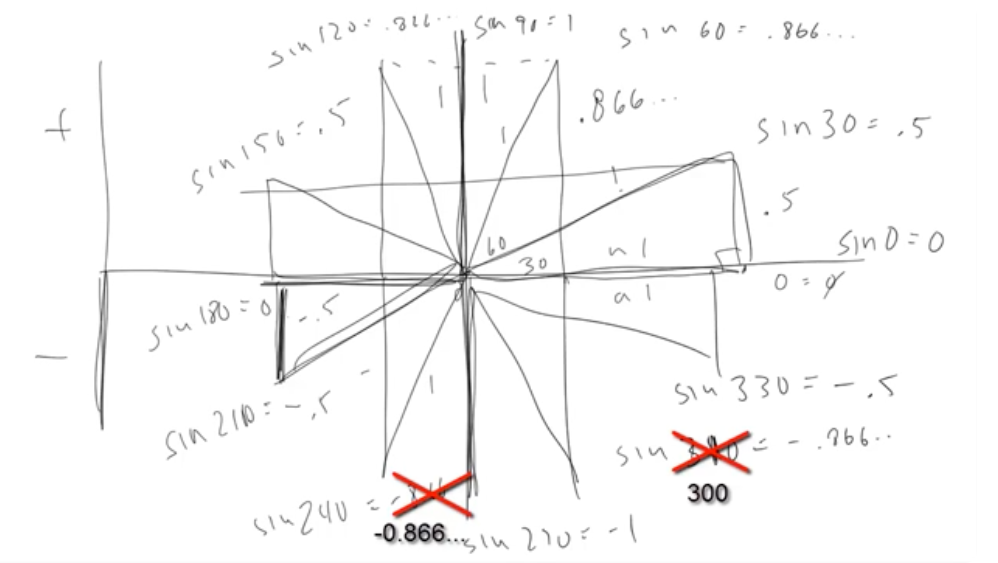 sin 120 = .866...
sin 90 = 1
sin 60 = .866...
+
1
1
1
.866...
sin 150 = .5
sin 30 = .5
1
.5
60
30
sin 0 = 0
0 = 0
sin 180 = 0
-.5
a 1
-
-
1
sin 210 = -.5
sin 330 = -.5
sin = -.866..
300
sin 240 = -
-0.866...
sin 270 = -1